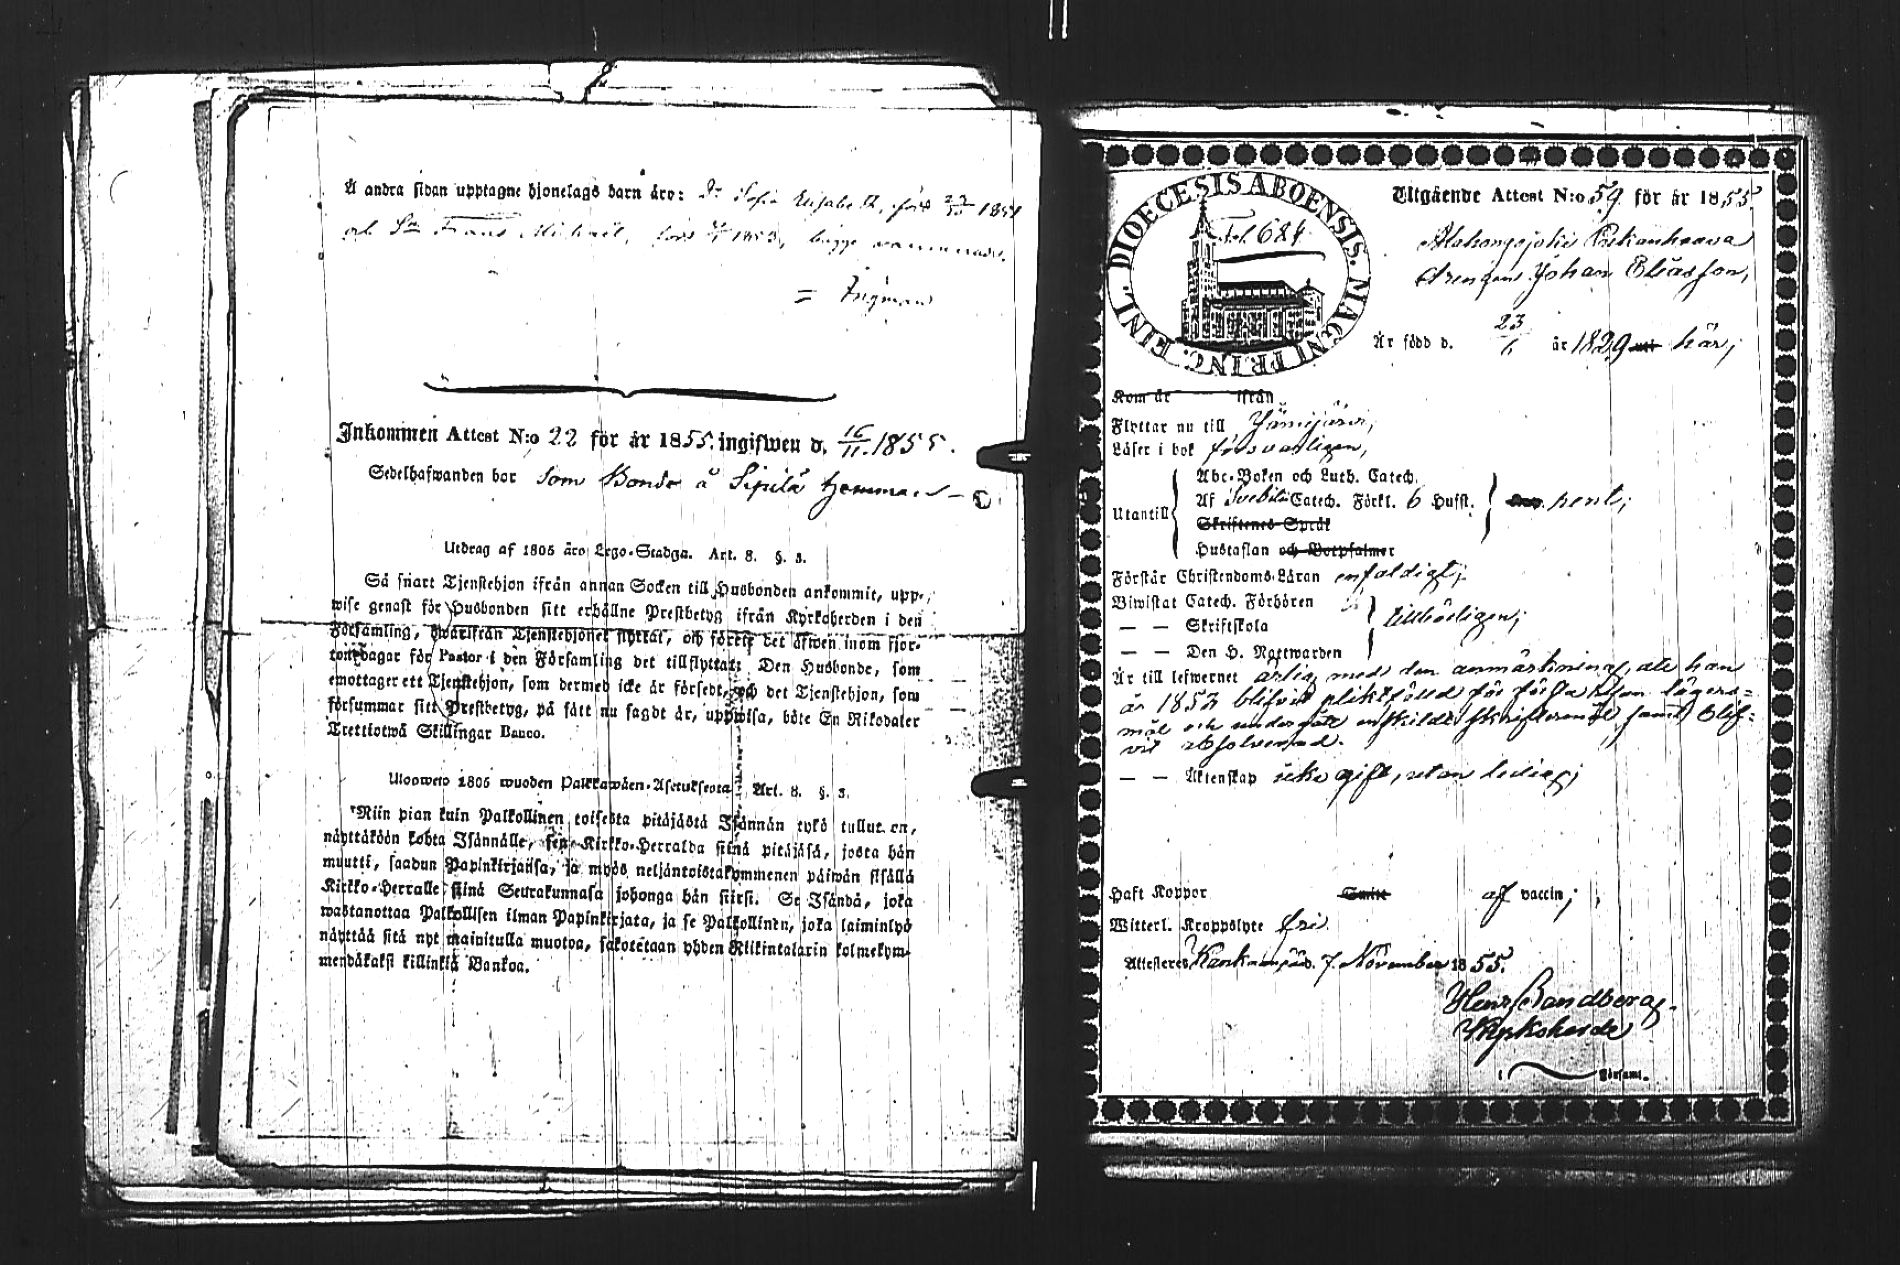 Å andra sidan upptagne hjonelags barn äro: Dr Sofia Elisabeth, född 1851
och Sn Frans Michaël, född 1853, bägge vaccinerade.
= Ingman
Inkommen Attest N:o 22 för år 1855. ingifwen d. 16/11 1855.
Sedelhafwanden bor som Bonde å Sipilä hemman
Utdrag af 1805 års Lego-Stadga. Art. 8. §. 3.
Så snart Tjenstehjon ifrån annan Socken till Husbonden ankommit, upp-
wise genast för Husbonden sitt erhållne Prestbetyg ifrån Kyrkoherden i den
Församling, hwarifrån Tjenstehjonet flyttat, och förete det äfwen inom fjor-
ton dagar för Pastor i den Församling det tillflyttat: Den Husbonde, som
emottager ett Tjenstehjon, som dermed icke är försedt, och det Tjenstehjon, som
försummar sitt Prestbetyg, på sätt nu sagdt är, uppwisa, böte En Riksdaler
Trettiotwå Skillingar Banco.
Ulosweto 1805 wuoden Palkkawäen-Asetuksesta Art. 8. §. 3.
Niin pian kuin Palkollinen toisesta pitäjästä Isännän tykö tullut on,
näyttäköön kohta Isännälle, sen Kirkko-Herralda siinä pitäjäsä, josta hän
muutti, saadun Papinkirjansa, ja myös neljäntoistakymmenen päiwän sisällä
Kirkko-Herralle siinä Seurakunnasa johonga hän siirsi. Se Isändä, joka
wastanottaa Palkollisen ilman Papinkirjata, ja se Palkollinen, joka laiminlyö
näyttää sitä nyt mainitulla muotoa, sakotetaan yhden Riikintalarin kolmekym-
mendäkaksi killinkiä Bankoa.
DIOECESIS ABOENSIS. MAGNI PRINC. FINL.
Fol. 684
Utgående Attest N:o 59 för år 1855
Alahongojoki
Drengen Johan Eliasson,
Är född d. 23/6 år 1829 här;
Kom år ifrån
Flyttar nu till Jämijärvi,
Läser i bok försvarligen,
Utantill
Abc-Boken och Luth. Catech.
Af Svebilii Catech. Förkl. 6 Hufst.
Skriftenes Språk
Hustaflan och Botpsalmer
Förstår Christendoms-Läran enfaldigt;
Biwistat Catech. Förhören
— — Skriftskola tillbörligen;
— — Den H. Nattwarden
Är till lefwernet ärlig med den anmärkning, att han
år 1853 blifvit pliktfälld för första resan lägers=
mål och undergått enskildt skriftermål, samt blif=
vit absolverad.
— — Äktenskap icke gift, utan ledig;
Haft Koppor Smitt af vaccin;
Witterl. Kroppslyte fri.
Attesteres Kankaanpää d. 7 November 1855.
Henr. Sandberg.
Kyrkoherde
i Församl.